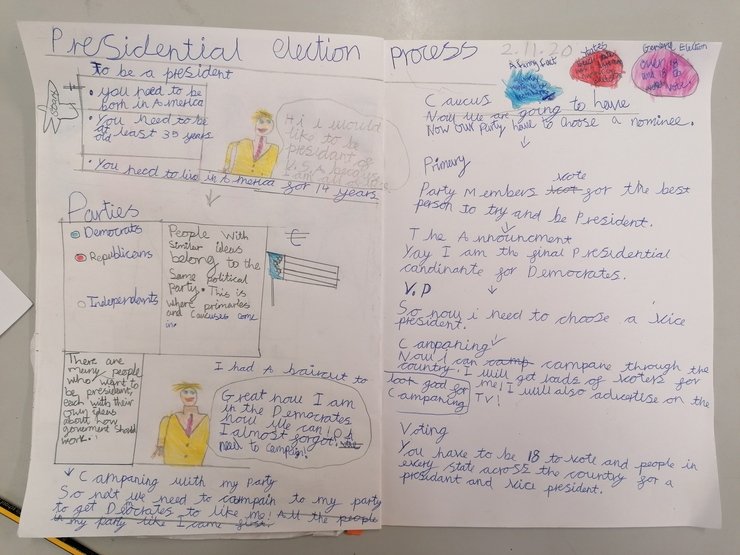 Presidential election process 2.11.20
To be a president
• You need to be
born in America
• You need to be
at least 35 years
old
• You need to live in America for 14 years
Hi i would
like to be
president of
U.S.A because
I am
Parties
Democrats
Republicans
Independants
People with
similar ideas
belong to the
same political
party. This is
where primaries
and caucuses come
in.
There are
many people
who want to
be president,
each with their
own ideas
about how
goverment should
work.
I had A haircut to
Great now I am
in the Democrates
now we can!
I almost forgot!
need to campaign!
Campaning with my party
So not we need to campain to my party
to get Deocrates to like me! All the people
in my party like I came first
A Funny Fact
States
General Election
Caucus
Now we are going to have
Now our party have to choose a nominee.
Primary
vote
Party Members for the best
person to try and be President.
The Announcment
Yay I am the final Presidential
candinante for Democrates.
V.P
So now i need to choose a vice
president.
Campaning
Now I can camp campane through the
country. I will get loads of voters for
look good for me! I will also advertise on the
Campaning TV!
Voting
You have to be 18 to vote and people in
every state across the country for a
presidant and vice president.